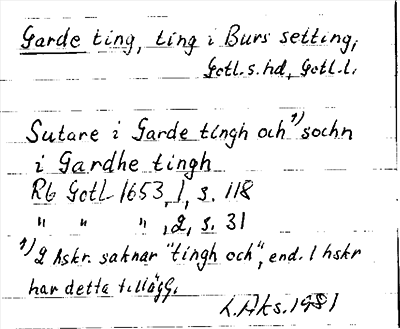 Garde ting, ting i Burs setting,
Gotl. s. hd, Gotl. l.
Sutare i Garde tingh och 1) sochn
i Gardhe tingh
Rb Gotl 1653, 1, s. 118
" " ", 2, s. 31
1) 2 hskr. saknar "tingh och", end. 1 hskr
har detta tillägg.
L. Aks. 1981